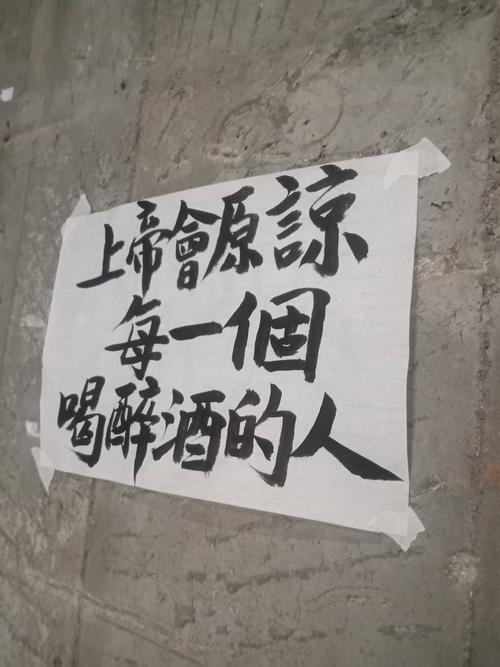 上帝會原諒
每一個
喝醉酒的人